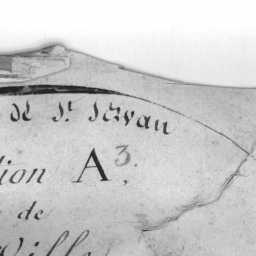 de St. Servan
tion A³,
de
Ville